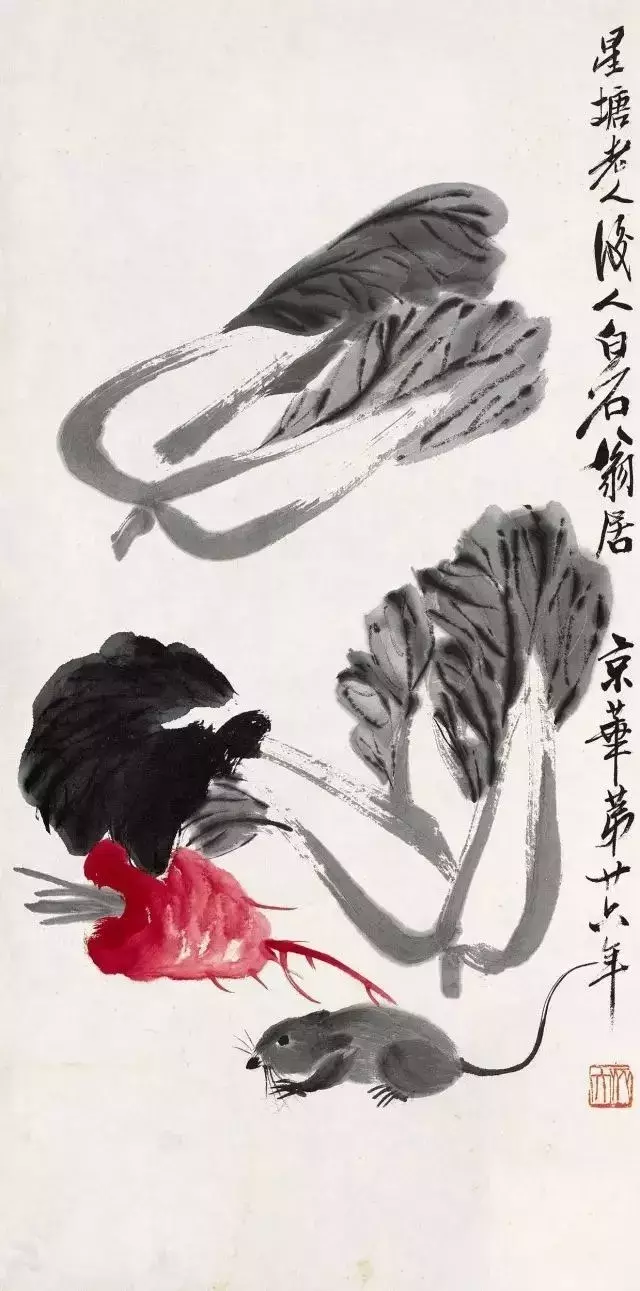 星塘老人後人白石翁居京華第廿六年